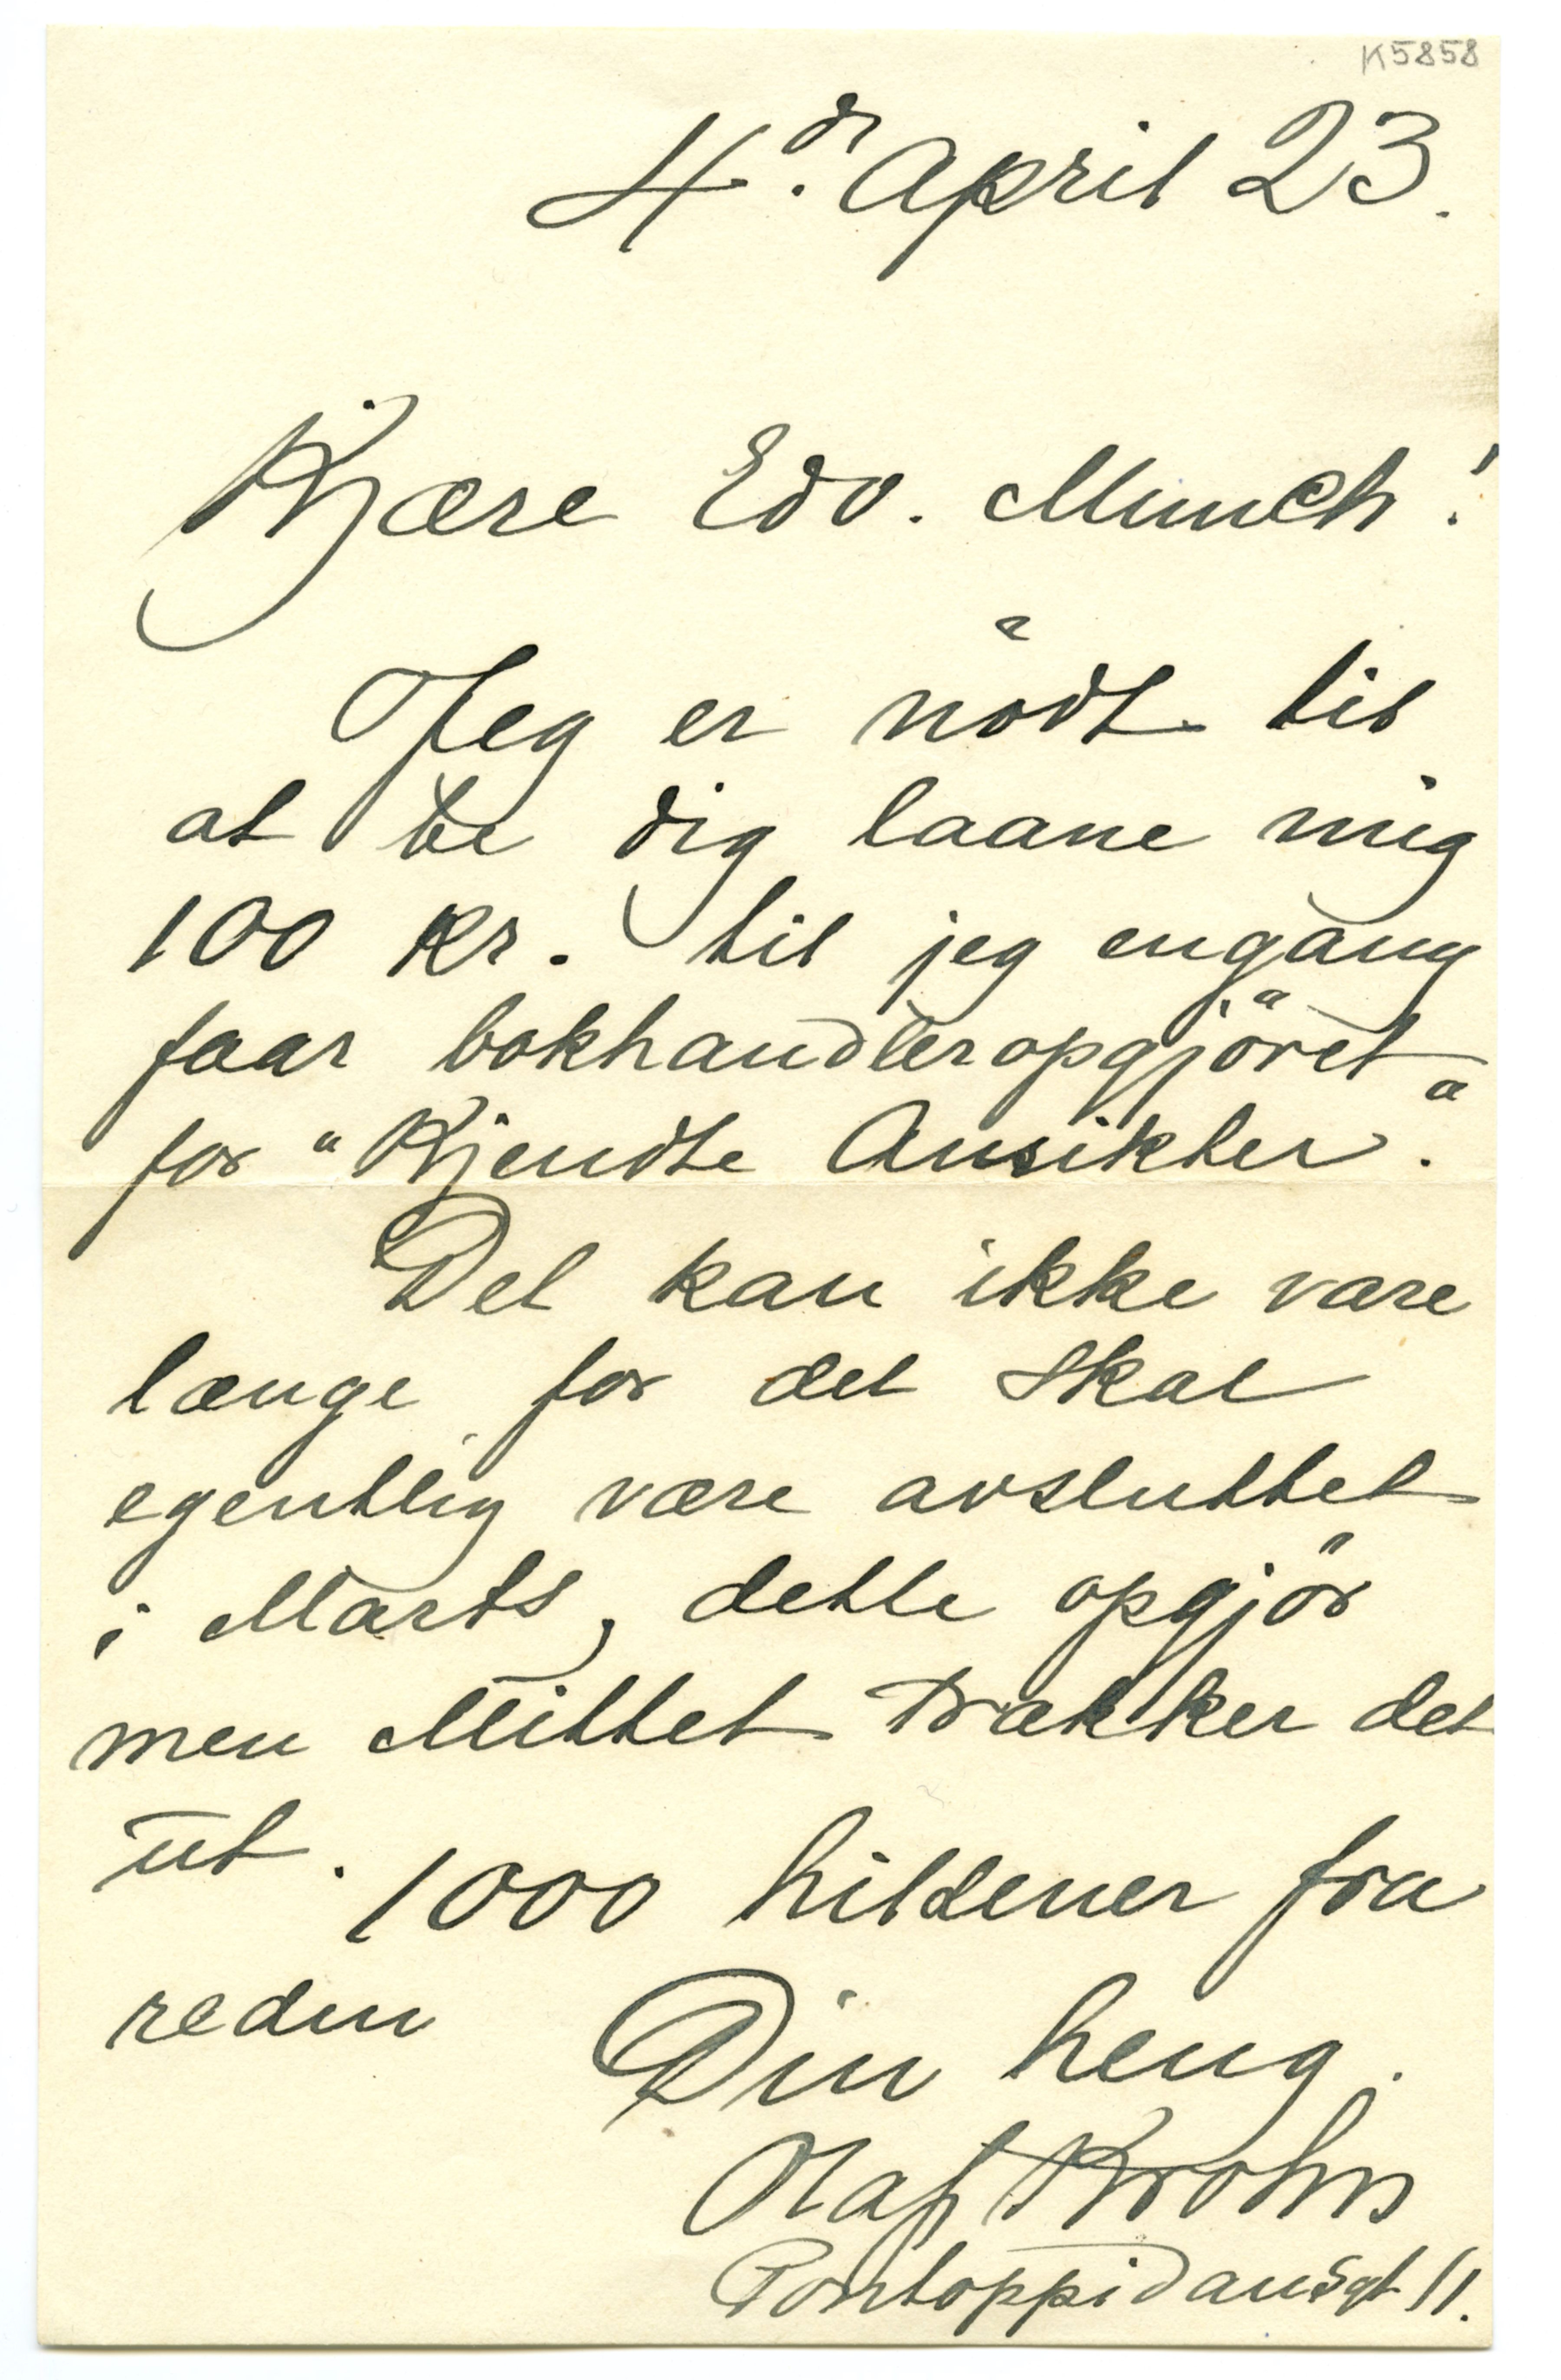 K5858
4de. April 23.
Kjære Edv. Munch!
Jeg er nödt til
at be dig laane mig
100 kr. til jeg engang
faar bokhandleropgjöret
for "Kjendte Ansikter".
Det kan ikke vare
længe for det skal
egentlig være avsluttet
i Marts, dette opgjör
men Mittet trækker det
ut.
1000 hilsener fra
reden
Din heng.
Olaf Krohn
Pontoppidansgt 11.